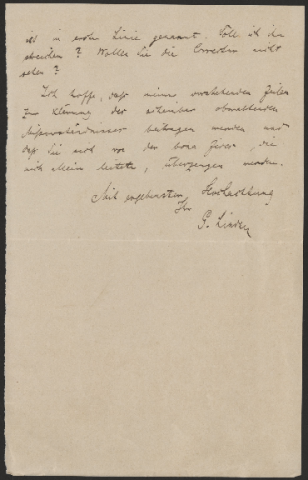 ist in erster Linie genannt. Soll ich ihn
absenden? Wollen Sie die Correctur nicht
sehen?
Ich hoffe, daß meine vorstehenden Zeilen
zur Klärung der scheinbar obwaltenden
Missverständnisse beitragen werden und
daß Sie sich von der bona fides, die
mich dabei leitete, überzeugen werden.
Mit ergebenster Hochachtung
Ihr
P. Linden